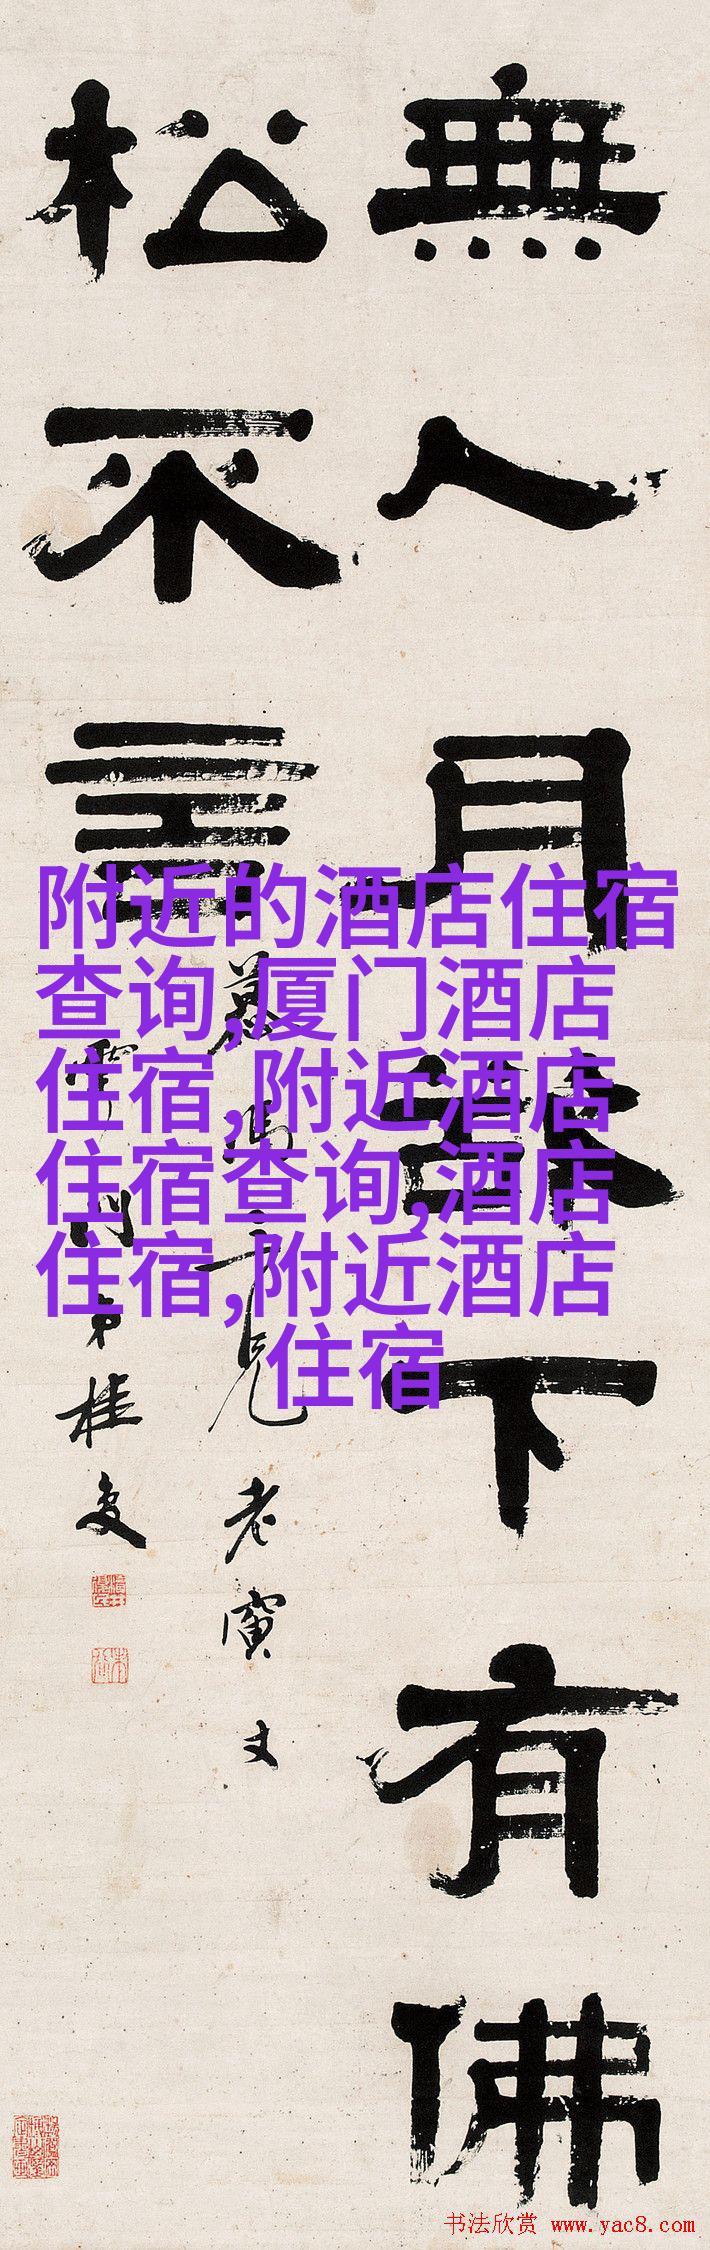 無人月下有佛
松不言
兄老寅丈
弟桂
附近的酒店住宿
查询,厦门酒店
住宿,附近酒店
住宿查询,酒店
住宿,附近酒店
住宿
书法欣赏 www.yac8.com